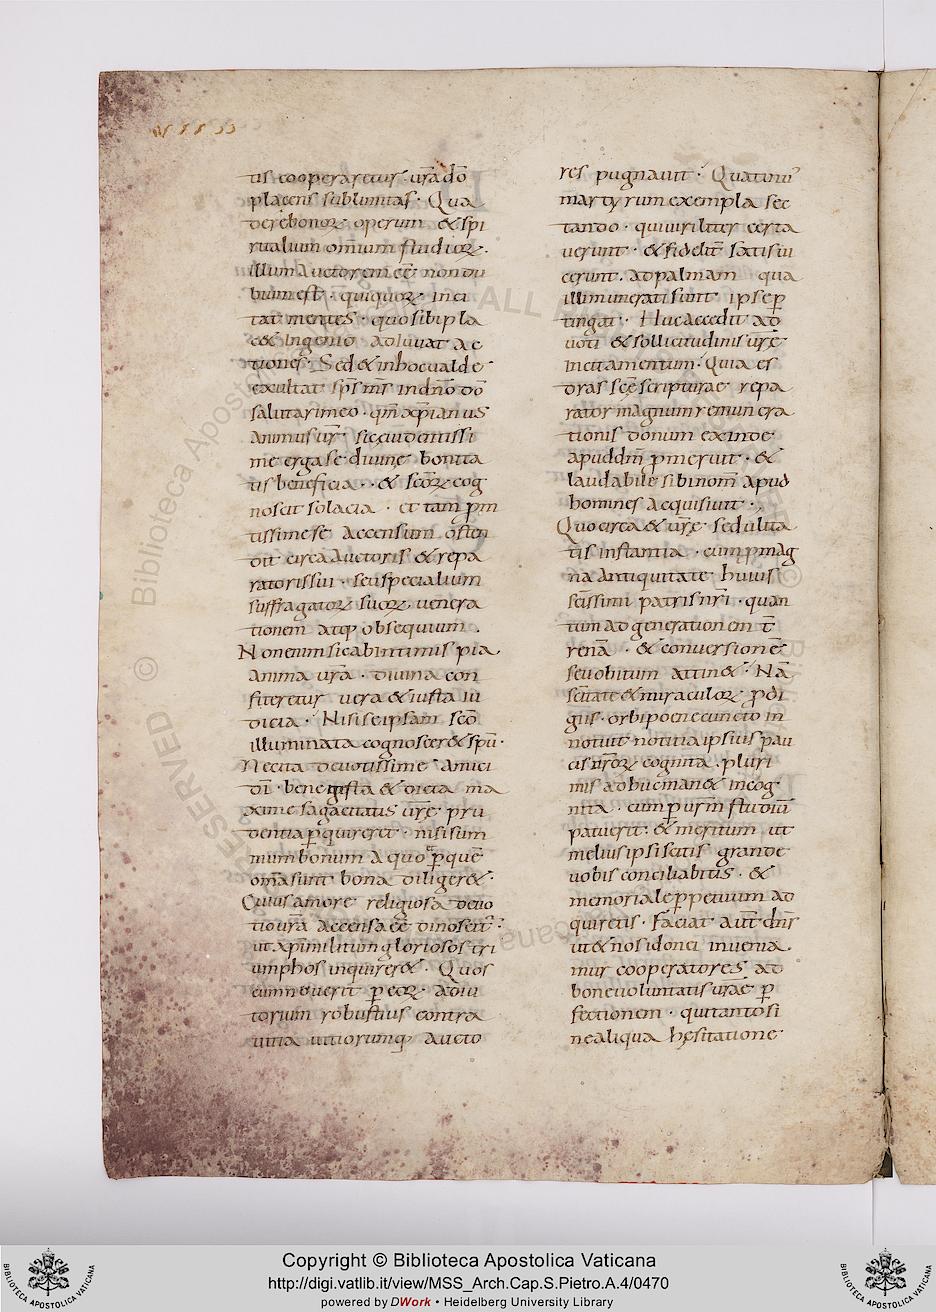 tis cooperaretur ur̄a dō
placens sublimitas · Qua
de re bonoꝝ operum & spi
ritualium om̄ium studioꝝ ·
illum auctorem eē non du
bium est · qui quoꝝ inci
tat mentes · quo sibi pla
c& ingenio adiuvat ac
tiones · Sed & in hoc valde
exultat sp̄s m̄s in dn̄o dō
salutari meo · qm̄ xp̄ianus
animus ur̄ · sic evidentissi
me erga se divinę bonita
tis beneficia · & sc̄oꝝ cog
noscit solacia · et tam ꝓm
tissime se accensum osten
dit circa auctoris & repa
ratoris sui · seu specialium
suffragatoꝝ suoꝝ venera
tionem atq; obsequium ·
Non enim sic ab intimis pia
anima ur̄a · divina con
fiteretur vera & iusta iu
dicia · Nisi se ipsam sc̄o
illuminata cognoscer& sp̄u ·
Nec ita devotissime amici
dī · bene gesta & dicta ma
xime sagacitatis ur̄ę pru
dentia ꝑquireret · nisi sum
mum bonum a quo ꝑ quē
om̄a sunt bona diliger& ·
Cuius amore religiosa devo
tio ur̄a accensa eē dinoscit ·
ut xp̄i militum gloriosos tri
umphos inquirer& · Quos
cum noverit ꝑ eoꝝ adiu
torium robustius contra
vitia vitiorumq; aucto
res pugnavit · Quatinus
martyrum exempla sec
tando · qui viriliter certa
verunt · & fidelit̄ sc̄ati sui
cerunt · ad palmam qua
illi munerati sunt ipse ꝑ
tingat · Huc accedit ad
uoti & sollicitudinis ur̄ę
incitamentum · Quia
dras sc̄ę scripturae repa
rator magnum remunera
tionis donum exinde
apud dm̄ ꝓmeruit · &
laudabile sibi nom̄ apud
homines acquisivit ·
Quocirca & ur̄ę sedulita
tis instantia · cum ꝓ mag
na antiquitate huius
sc̄issimi patris nr̄i · quan
tum ad generationem t̄
renā · & conversionē
seu obitum attin& · Nā
sc̄itate & miraculoꝝ ꝓdi
giis · orbi poene cuncto in
notuit notitia ipsius pau
cis uiroꝝ cognita · pluri
mis adhuc man& incog
nita · cum ꝑ ur̄m studiū
patuerit & meritum ut
melius ipsi scitis grande
uobis conciliabitis · &
memoriale ꝑpetuum ad
quiretis · Faciat aut̄ dn̄s
ut & nos idonei invenia
mur cooperatores ad
bonevoluntatis ur̄ae ꝑ
fectionem · qui tanto si
ne aliqua hęsitatione
ALL
RESERVED
©
Biblioteca Apostolica Vaticana
Copyright © Biblioteca Apostolica Vaticana
http://digi.vatlib.it/view/MSS_Arch.Cap.S.Pietro.A.4/0470
powered by DWork • Heidelberg University Library
BIBLIOTECA APOSTOLICA VATICANA
BIBLIOTECA APOSTOLICA VATICANA